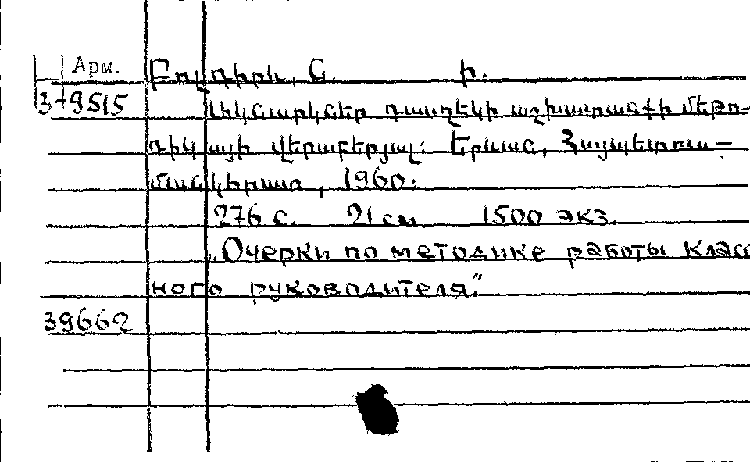 Арм. Բոլդիրև, Ս. Ի.
3-9515 Ակնարկներ դասղեկի աշխատանքի մեթո-
դիկայի վերաբերյալ: Երևան, Հայպետուս-
մանկհրատ, 1960.
276 с. 21 см 1500 экз.
„Очерки по методике работы класс
ного руководителя."
39662